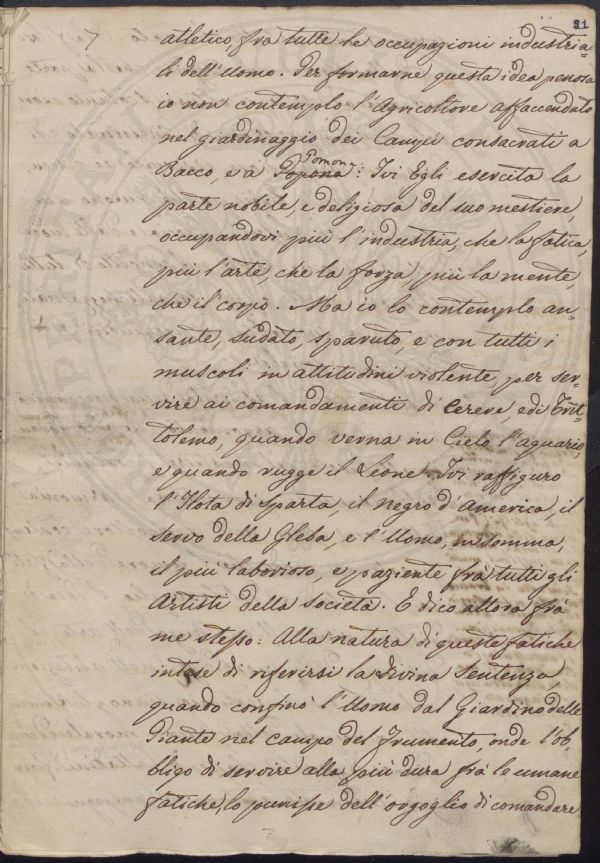 21
atletico, frà tutte le occupazioni industria=
li dell'Uomo. Per formarne questa idea penosa
io non contemplo l'Agricoltore affaccendato
nel giardinaggio dei Campi consacrati a
Bacco, e a Popona Pomona: Ivi Egli esercita la
parte nobile, e deligiosa del suo mestiere,
occupandovi più l'industria, che la fatica,
più l'arte, che la forza, più la mente,
che il corpo. Ma io lo contemplo an=
sante, sudato, sparuto, e con tutti i
muscoli in attitudini violente, per ser=
vire ai comandamenti di Cerere, e di Trit=
tolemo, quando verna in Cielo l'Aquario,
e quando rugge il Leone. Ivi raffiguro
l'Ilota di Sparta, il negro d'America, il
servo della Gleba, e l'Uomo, in somma,
il più laborioso, e paziente frà tutti gli
Artisti della società. E dico allora frà
me stesso: Alla natura di queste fatiche
intese di riferirsi la divina Sentenza
quando confinò l'Uomo dal Giardino delle
Piante nel campo del Frumento, onde l'ob=
bligo di servire alla più dura frà le umane
fatiche, lo punisse dell'orgoglio di comandare